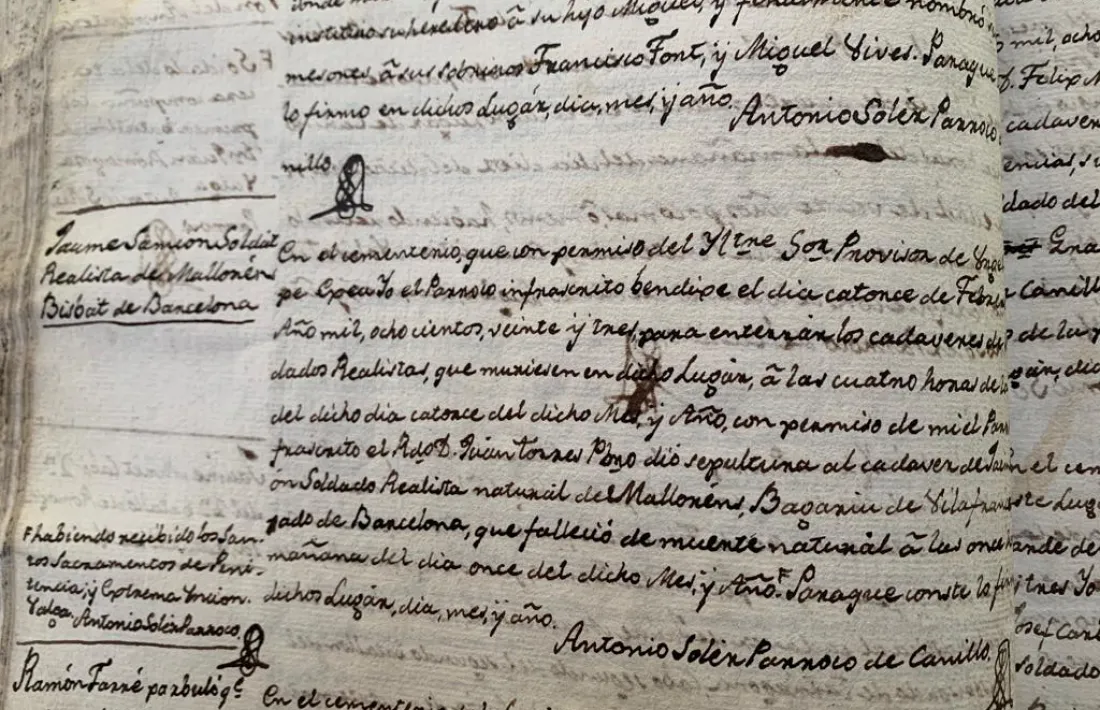 instituio su heredero â su hijo Miguel, y
mesores â sus sobrinos Francisco Font, y Miguel Vives. Paraque
lo firmo en dichos Lugár, dia, mes, y año.
Antonio Solér Parroco
nillo.
Jaume Samson Soldat
Realista de Malloréns
Bisbat de Barcelona
En el cementerio, que con permiso del Yltre Sor. Provisor de Urge
Yo el Parroco infrascrito bendixe el dia catorce de Febre
Año mil, ocho cientos, veinte y tres, para enterrár los cadaveres de
dados Realistas, que muriesen en dicho Lugár, â las cuatro horas de la
del dicho dia catorce del dicho Mes, y Año, con permiso de mi el Parr
frascrito el Rdo. D. Juán Torres Pbro dió sepultura al cadaver de Jau
ón Soldado Realista naturál de Mallorèns, Bagariu de Vilafran
pado de Barcelona, que falleció de muerte naturál â las once
mañana del dia once del dicho Mes, y Año. F Paraque conste lo fir
dichos Lugár, dia, mes, y año.
Antonio Solér Parroco de Canillo.
F habiendo recibido los San-
tos Sacramentos de Peni-
tencia, y Extrema Uncion.
Valga. Antonio Solér Parroco
Ramón Farré parbulo
En el cementerio
mil, ocho
Felix M
cadaver
dado del
Gra
Canill
de la
gár, dia
n el cem
ste Lugá
ande de
tres Yo
Josef
Soldado